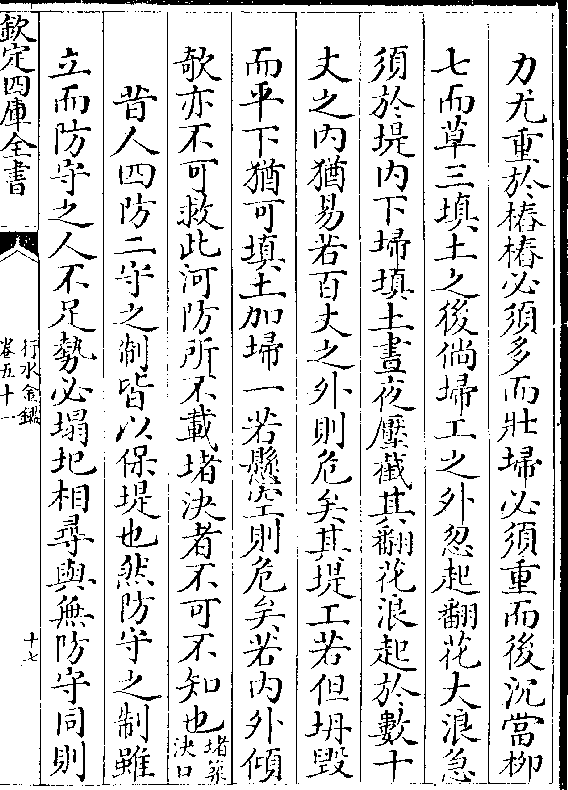 力尤重於樁樁必須多而壯埽必須重而後沉當柳
七而草三填土之後倘埽工之外忽起翻花大浪急
須於堤内下埽填土晝夜壓截其翻花浪起於數十
丈之内猶易若百丈之外則危矣其堤工若但坍毀
而平下猶可填土加埽一若懸空則危矣若内外傾
欹亦不可救此河防所不載堵決者不可不知也堵築決口
昔人四防二守之制皆以保堤也然防守之制雖
立而防守之人不足勢必塌圮相尋與無防守同則
欽定四庫全書
行水金鑑
卷五十一
十七